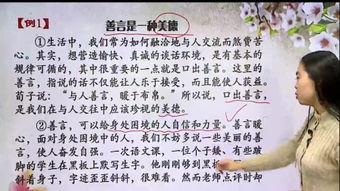 【例1】
善言是一种美德
①生活中,我们常为如何融洽地与人交流而然费苦
心。其实,想营造愉快、真诚的谈话环境,是有基本的
规律可循的,其中很重要的一点就是口出善言。这里的
善言,指说的话不仅能让人乐于接受,而且能使人获益。
荀子说:“与人善言,暖于布帛。”所以说,口出善言,
是我们在与人交往中应该珍视的美德。
②善言,可以给身处困境的人自信和力量。善言暖
心,面对身处困境中的人,我们不妨多说一些美丽的善
言,使人奋发自强。一次语文课,一位个子矮、有些跛
脚的学生在黑板上默写生字。他刚刚够到黑板
斜着身子,字迹歪歪斜斜,很难看。然而老师点评时却